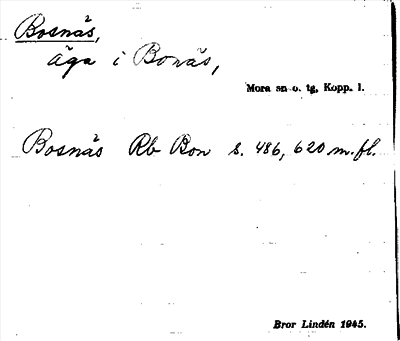 Bosnäs,
äga i Bonäs,
Mora sn o. tg, Kopp. l.
Bosnäs Rb Bon s. 486, 620 m.fl.
Bror Lindén 1945.